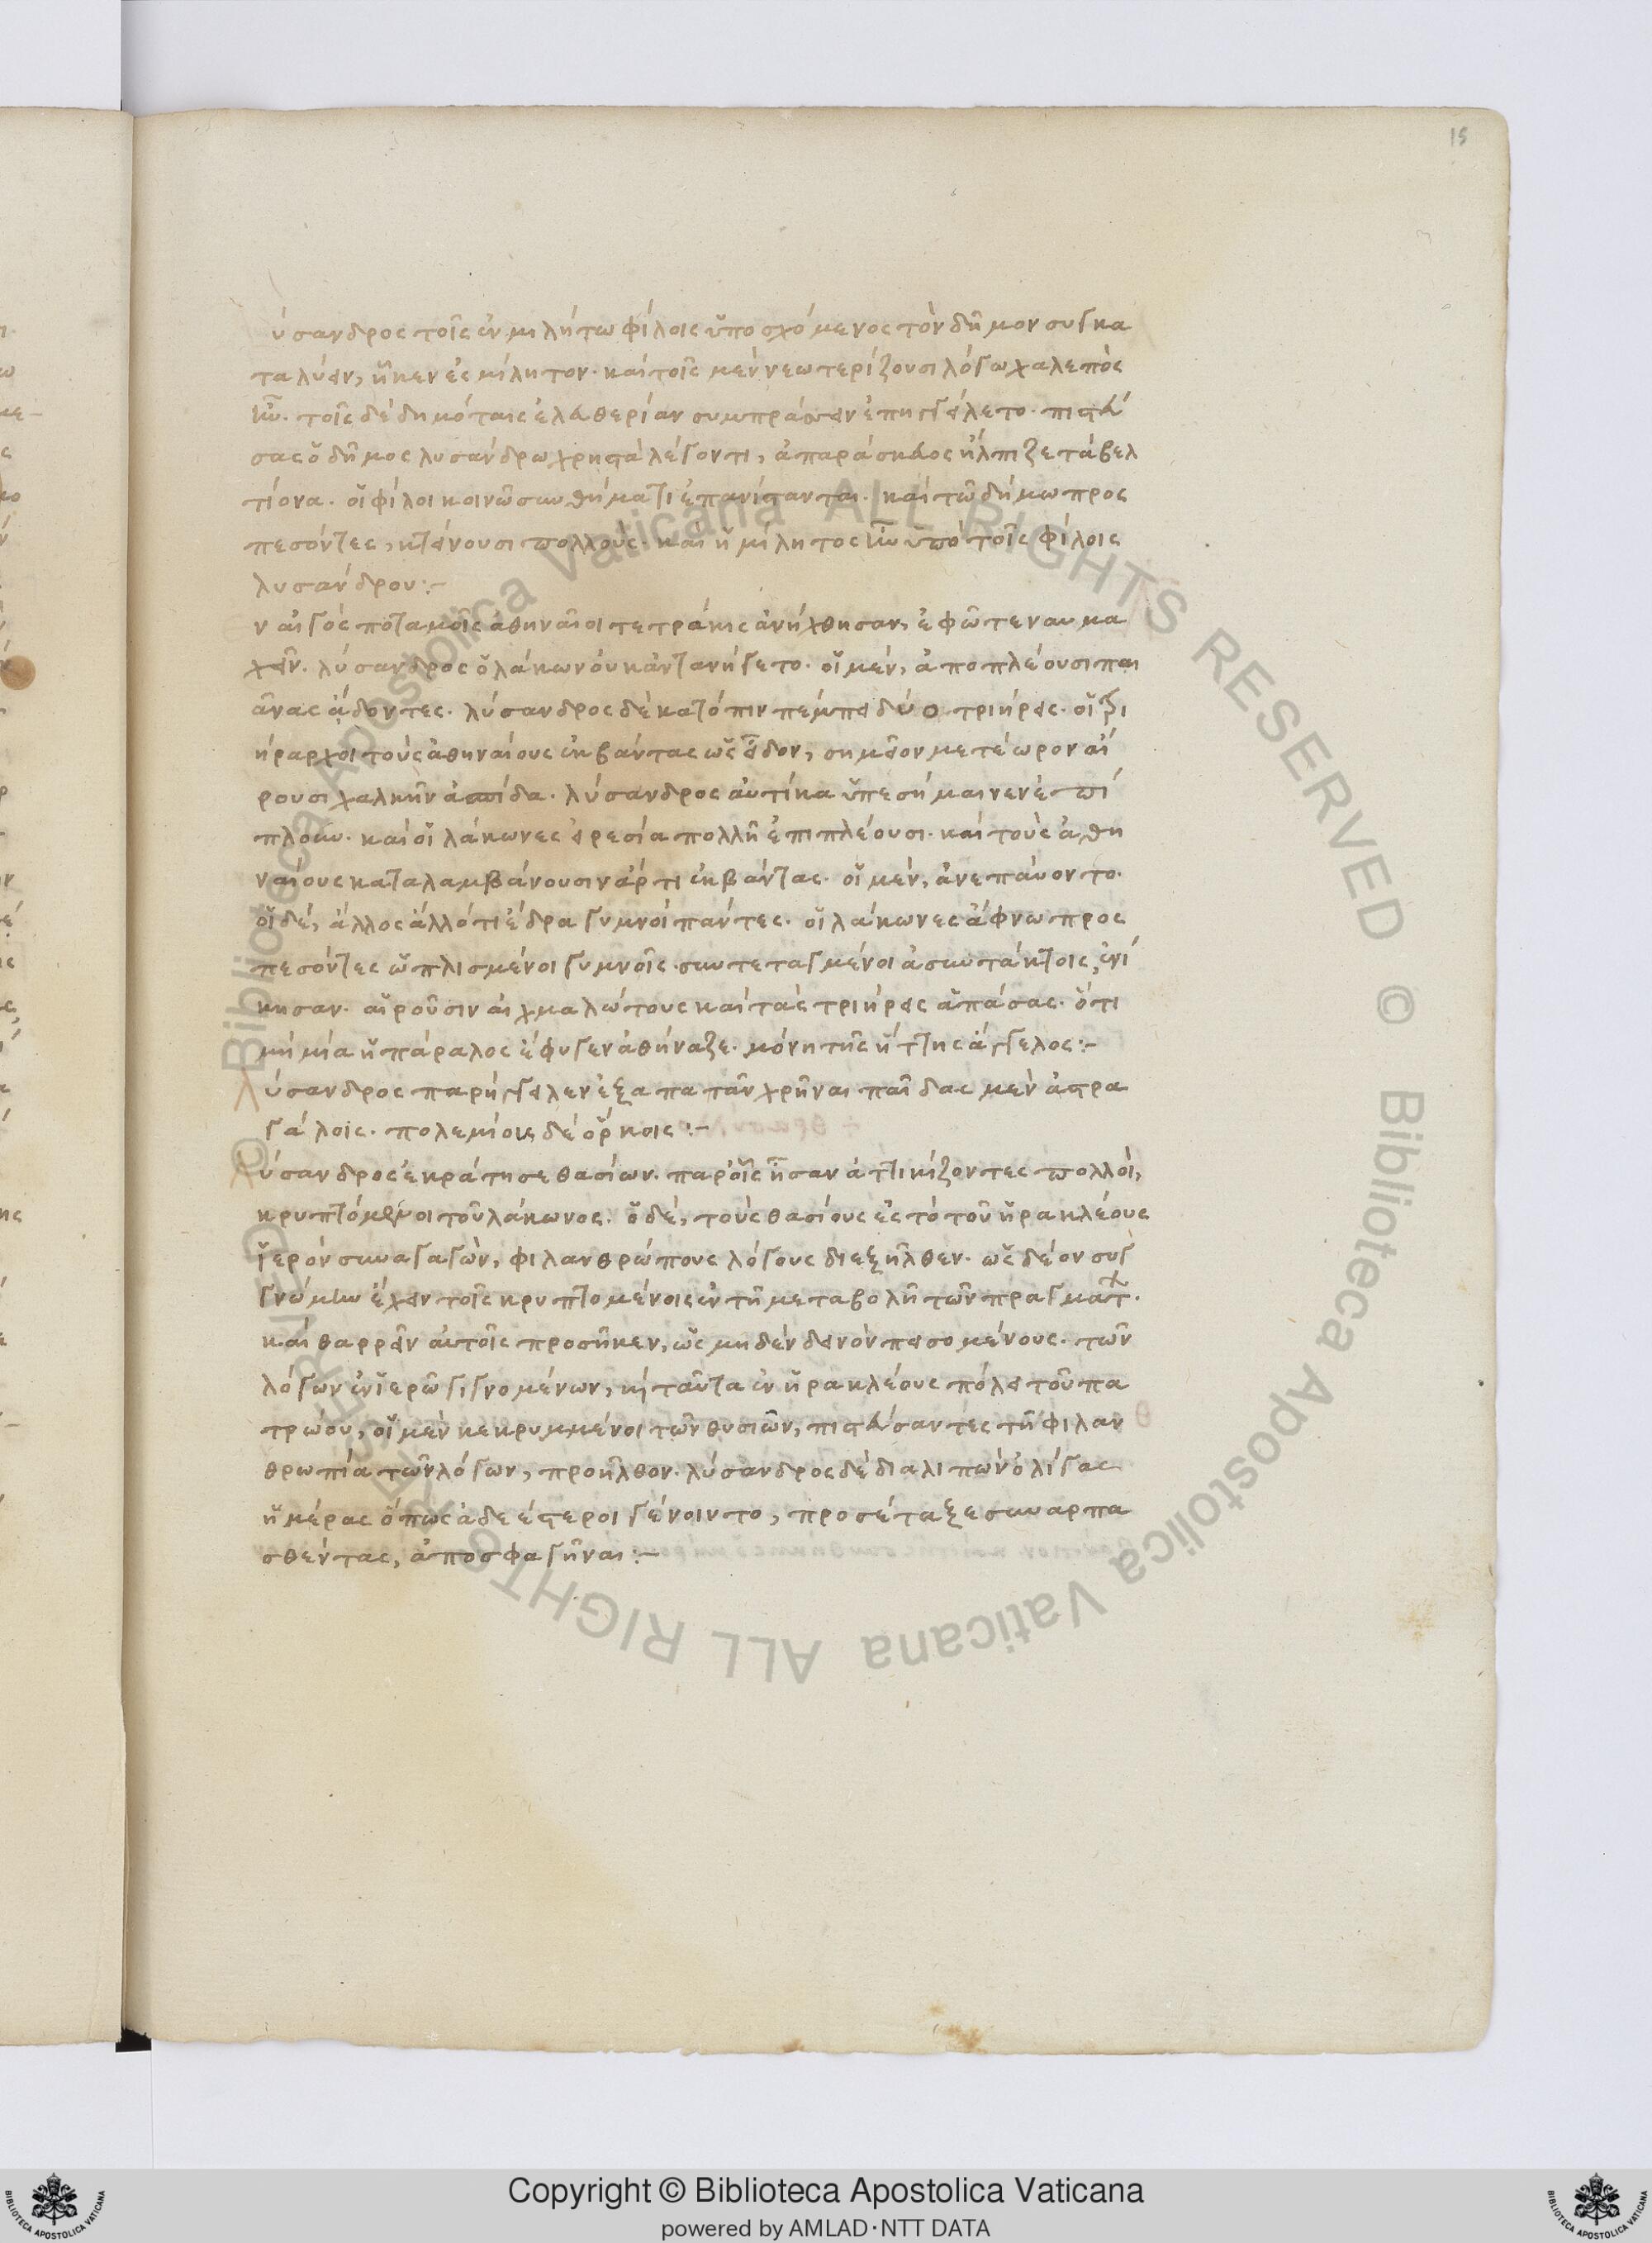 15
ύσανδρος τοῖς ἐν μιλήτω φίλοις ὑποσχόμενος τὸν δῆμον συγκα
ταλύειν, ἧκεν ἐς μίλητον· καὶ τοῖς μὲν νεωτερίζουσι λόγω χαλεπὸς
ἦν· τοῖς δὲ δημόταις ἐλευθερίαν συμπράσσειν ἐπηγγείλετο· πιστεύ
σας ὁ δῆμος λυσάνδρω χρηστὰ λέγοντι, ἀπαράσκευος ἤλπιζε τὰ βελ
τίονα· οἱ φίλοι κοινῶ συνθήματι ἐπανίστανται· καὶ τῶ δήμω προσ
πεσόντες, κτείνουσι πολλούς· καὶ ἡ μίλητος ἦν ὑπὸ τοῖς φίλοις
λυσάνδρου:-
ν αἰγὸς ποταμοῖς ἀθηναῖοι τετράκις ἀνήχθησαν, ἐφῶτε ναυμα
χεῖν· λύσανδρος ὁ λάκων οὐκ ἀντανήγετο· οἱ μὲν, ἀποπλέουσι παι
ᾶνας ἄδοντες· λύσανδρος δὲ κατόπιν πέμπει δύο τριήρεις· οἱ τρι
ήραρχοι τοὺς ἀθηναίους ἐκβάντας ὡς εἶδον, σημεῖον μετέωρον αἴ
ρουσι χαλκῆν ἀσπίδα· λύσανδρος αὐτίκα ὑπεσήμαινεν ἐπί
πλουν· καὶ οἱ λάκωνες εἰρεσία πολλῆ ἐπιπλέουσι· καὶ τοὺς ἀθη
ναίους καταλαμβάνουσιν ἄρτι ἐκβάντας· οἱ μὲν, ἀνεπαύοντο·
οἱ δὲ, ἄλλος ἄλλό τι ἔδρα γυμνοὶ πάντες· οἱ λάκωνες ἄφνω προσ
πεσόντες ὡπλισμένοι γυμνοῖς· συντεταγμένοι ἀσυντάκτοις, ἐνί
κησαν· αἱροῦσιν αἰχμαλώτους καὶ τὰς τριήρεις ἁπάσας· ὅτι
μὴ μία ἡ πάραλος ἔφυγεν ἀθήναζε· μόνη τῆς ἥττης ἄγγελος:-
Λύσανδρος παρήγγειλεν ἐξαπατᾶν χρῆναι παῖδας μὲν ἀστρα
γάλοις· πολεμίους δὲ ὅρκοις:-
Λύσανδρος ἐκράτησε θασίων· παρ' οἷς ἦσαν ἀττικίζοντες πολλοὶ,
κρυπτόμενοι τοῦ λάκωνος· ὁ δὲ, τοὺς θασίους ἐς τὸ τοῦ ἡρακλέους
ἱερὸν συναγαγὼν, φιλανθρώπους λόγους διεξῆλθεν· ὡς δέον συγ
γνώμην ἔχειν τοῖς κρυπτομένοις ἐν τῆ μεταβολῆ τῶν πραγμάτ·
καὶ θαρρεῖν αὐτοῖς προσῆκεν, ὡς μηδὲν δεινὸν πεισομένους· τῶν
λόγων ἐν ἱερῶ γιγνομένων, κὴ ταῦτα ἐν ἡρακλέους πόλει τοῦ πα
τρώου, οἱ μὲν κεκρυμμένοι τῶν θυσιῶν, πιστεύσαντες τῆ φιλαν
θρωπία τῶν λόγων, προῆλθον· λύσανδρος δὲ διαλιπὼν ὀλίγας
ἡμέρας ὅπως ἀδεέστεροι γένοιντο, προσέταξε συναρπα
σθέντας, ἀποσφαγῆναι:-
Copyright © Biblioteca Apostolica Vaticana
powered by AMLAD·NTT DATA